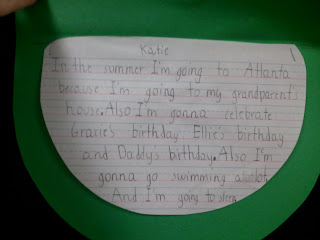 Katie
In the summer I'm going to Atlanta
because I'm going to my grandparent's
house. Also I'm gonna celebrate
Gracie's birthday Ellie's birthday
and Daddy's birthday. Also I'm
gonna go swimming
And I'm going to